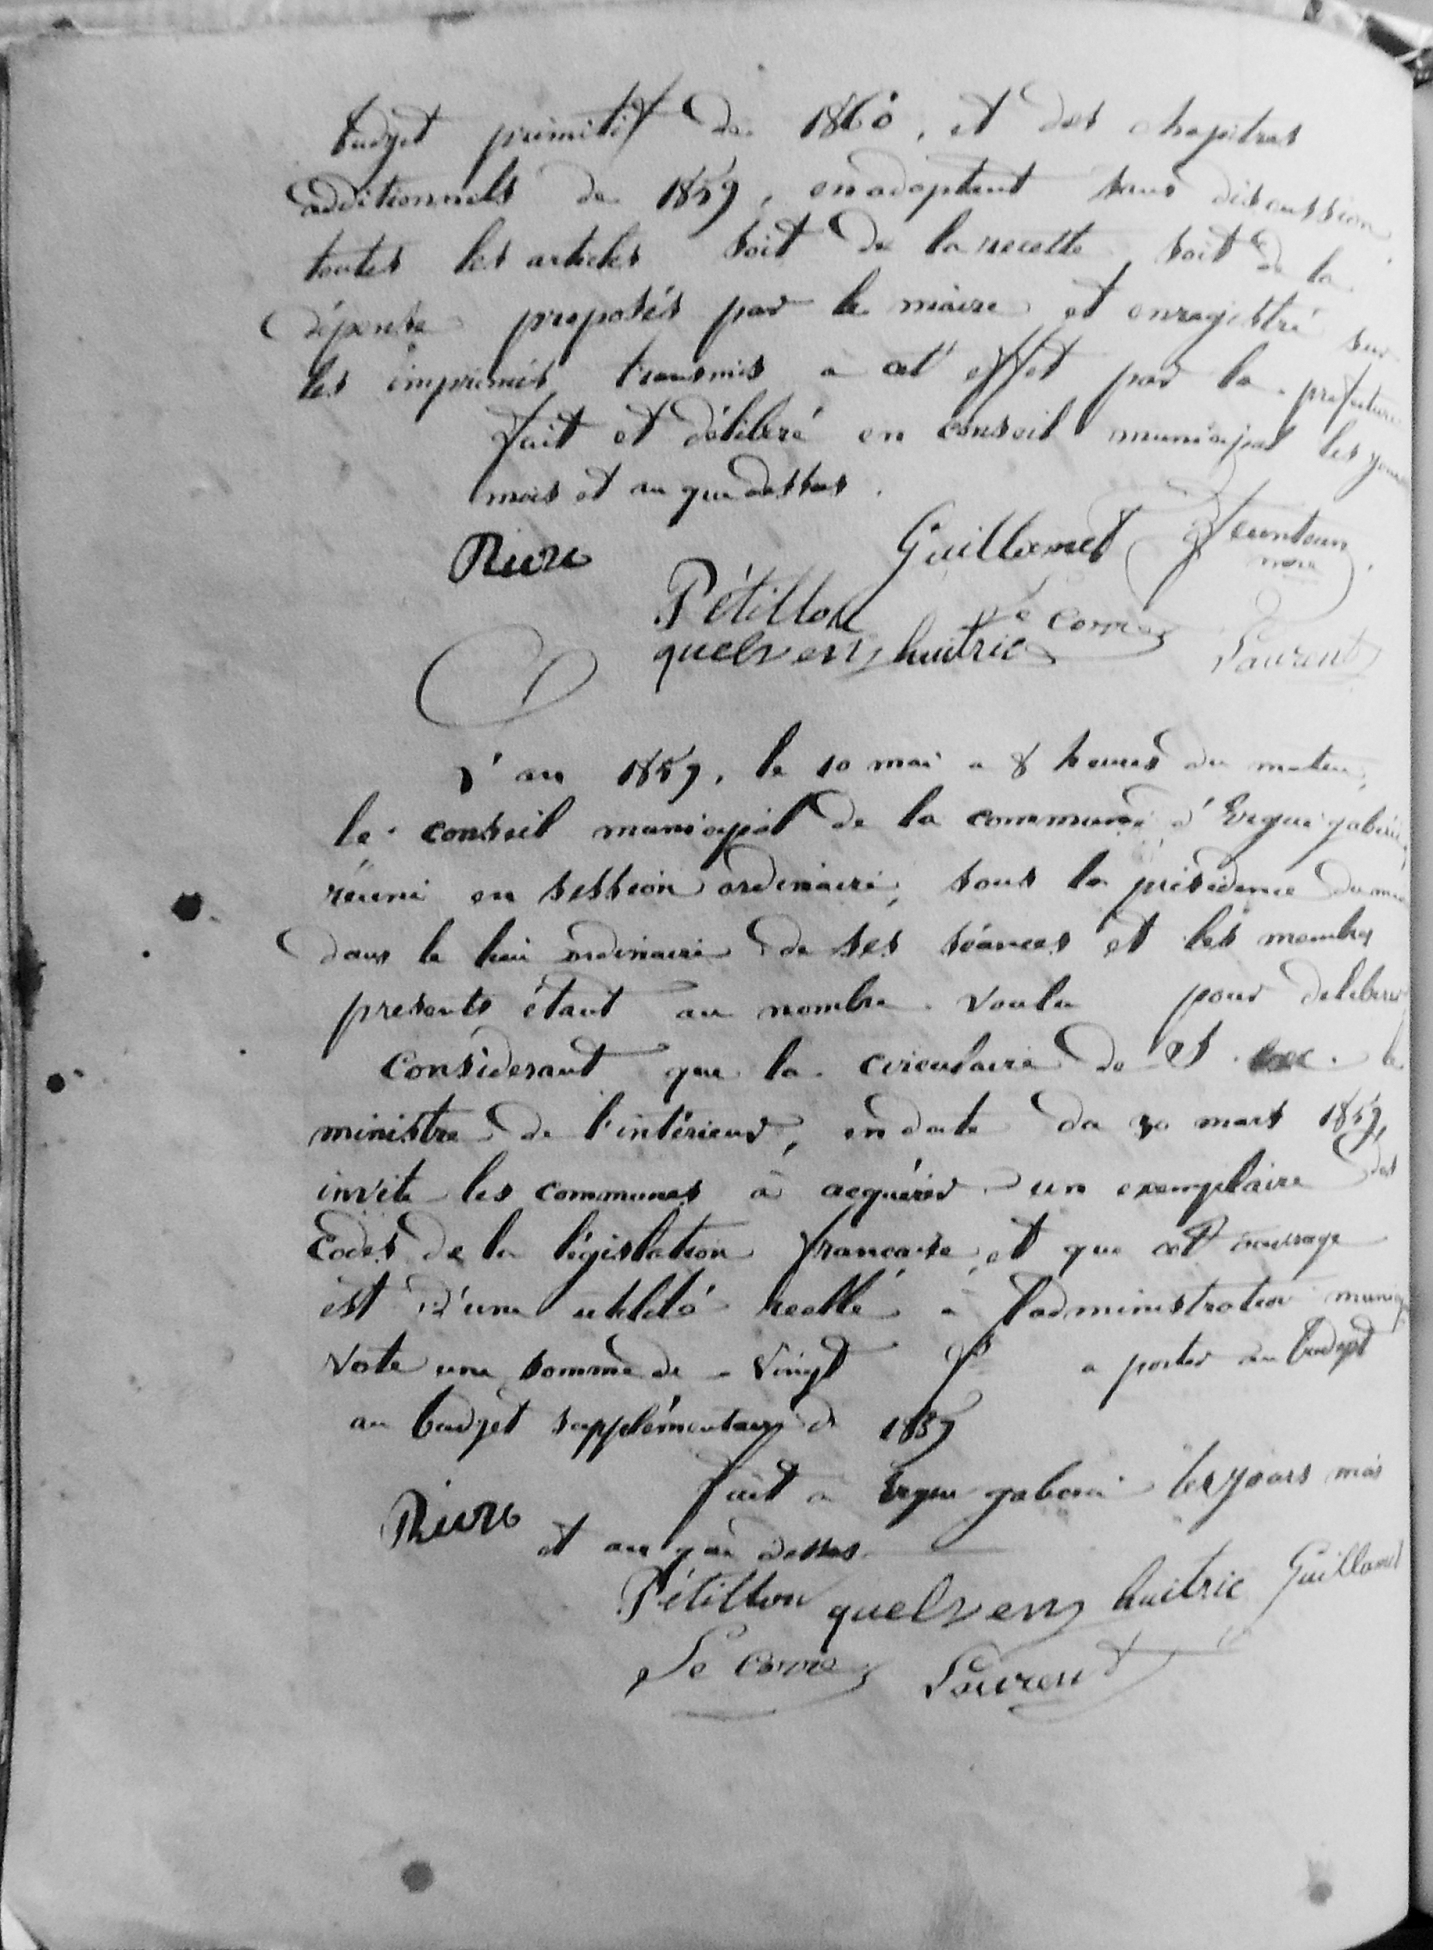 budget primitif de 1860, et des chapitres
additionnels de 1859, en adoptant sans discussion,
toutes les articles soit de la recette, soit de la
dépense proposés par le maire et enregistré sur
les imprimés transmis à cet effet par la prefecture
fait et délibéré en conseil municipal les jour
mois et an que dessus.
Guillamet
Pétillon Le Corre
quelven huitric Laurent
L'an 1859, le 10 mai a 8 heures du matin,
le conseil municipal de la commune d'Ergué gabéric,
réuni en session ordinaire, sous la présidence du
dans le lieu ordinaire de ses séances et les membres
presents étant au nombre voulu pour deliberer
Considerant que la circulaire de S. exc. le
ministre de l'intérieur, en date du 30 mars 1859,
invite les communes à acquérir un exemplaire des
Codes de la législation francaise, et que cet ouvrage
est d'une utilité reelle à l'administration
vote une somme de vingt fs a porter au budget
au budget supplémentaire de 1859
fait a Ergué gaberic les jours mois
et an que dessus
Pétillon quelven huitric Guillamet
Le Corre Laurent